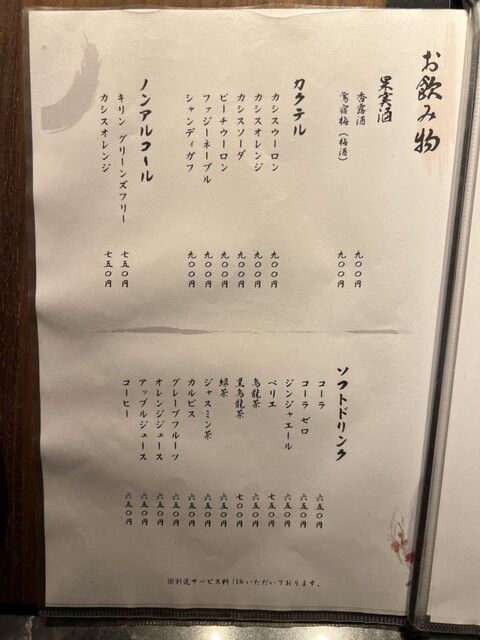 お飲み物
果実酒
杏露酒 九〇〇円
鶯宿梅(梅酒) 九〇〇円
カクテル
カシスウーロン 九〇〇円
カシスオレンジ 九〇〇円
カシスソーダ 九〇〇円
ピーチウーロン 九〇〇円
ファジーネーブル 九〇〇円
シャンディガフ 九〇〇円
ノンアルコール
キリン グリーンズフリー 七五〇円
カシスオレンジ 七五〇円
ソフトドリンク
コーラ 六五〇円
コーラ ゼロ 六五〇円
ジンジャエール 六五〇円
ペリエ 七五〇円
烏龍茶 六五〇円
黒烏龍茶 七〇〇円
緑茶 六五〇円
ジャスミン茶 六五〇円
カルピス 六五〇円
グレープフルーツ 六五〇円
オレンジジュース 六五〇円
アップルジュース 六五〇円
コーヒー 六五〇円
※別途サービス料10%いただいております。